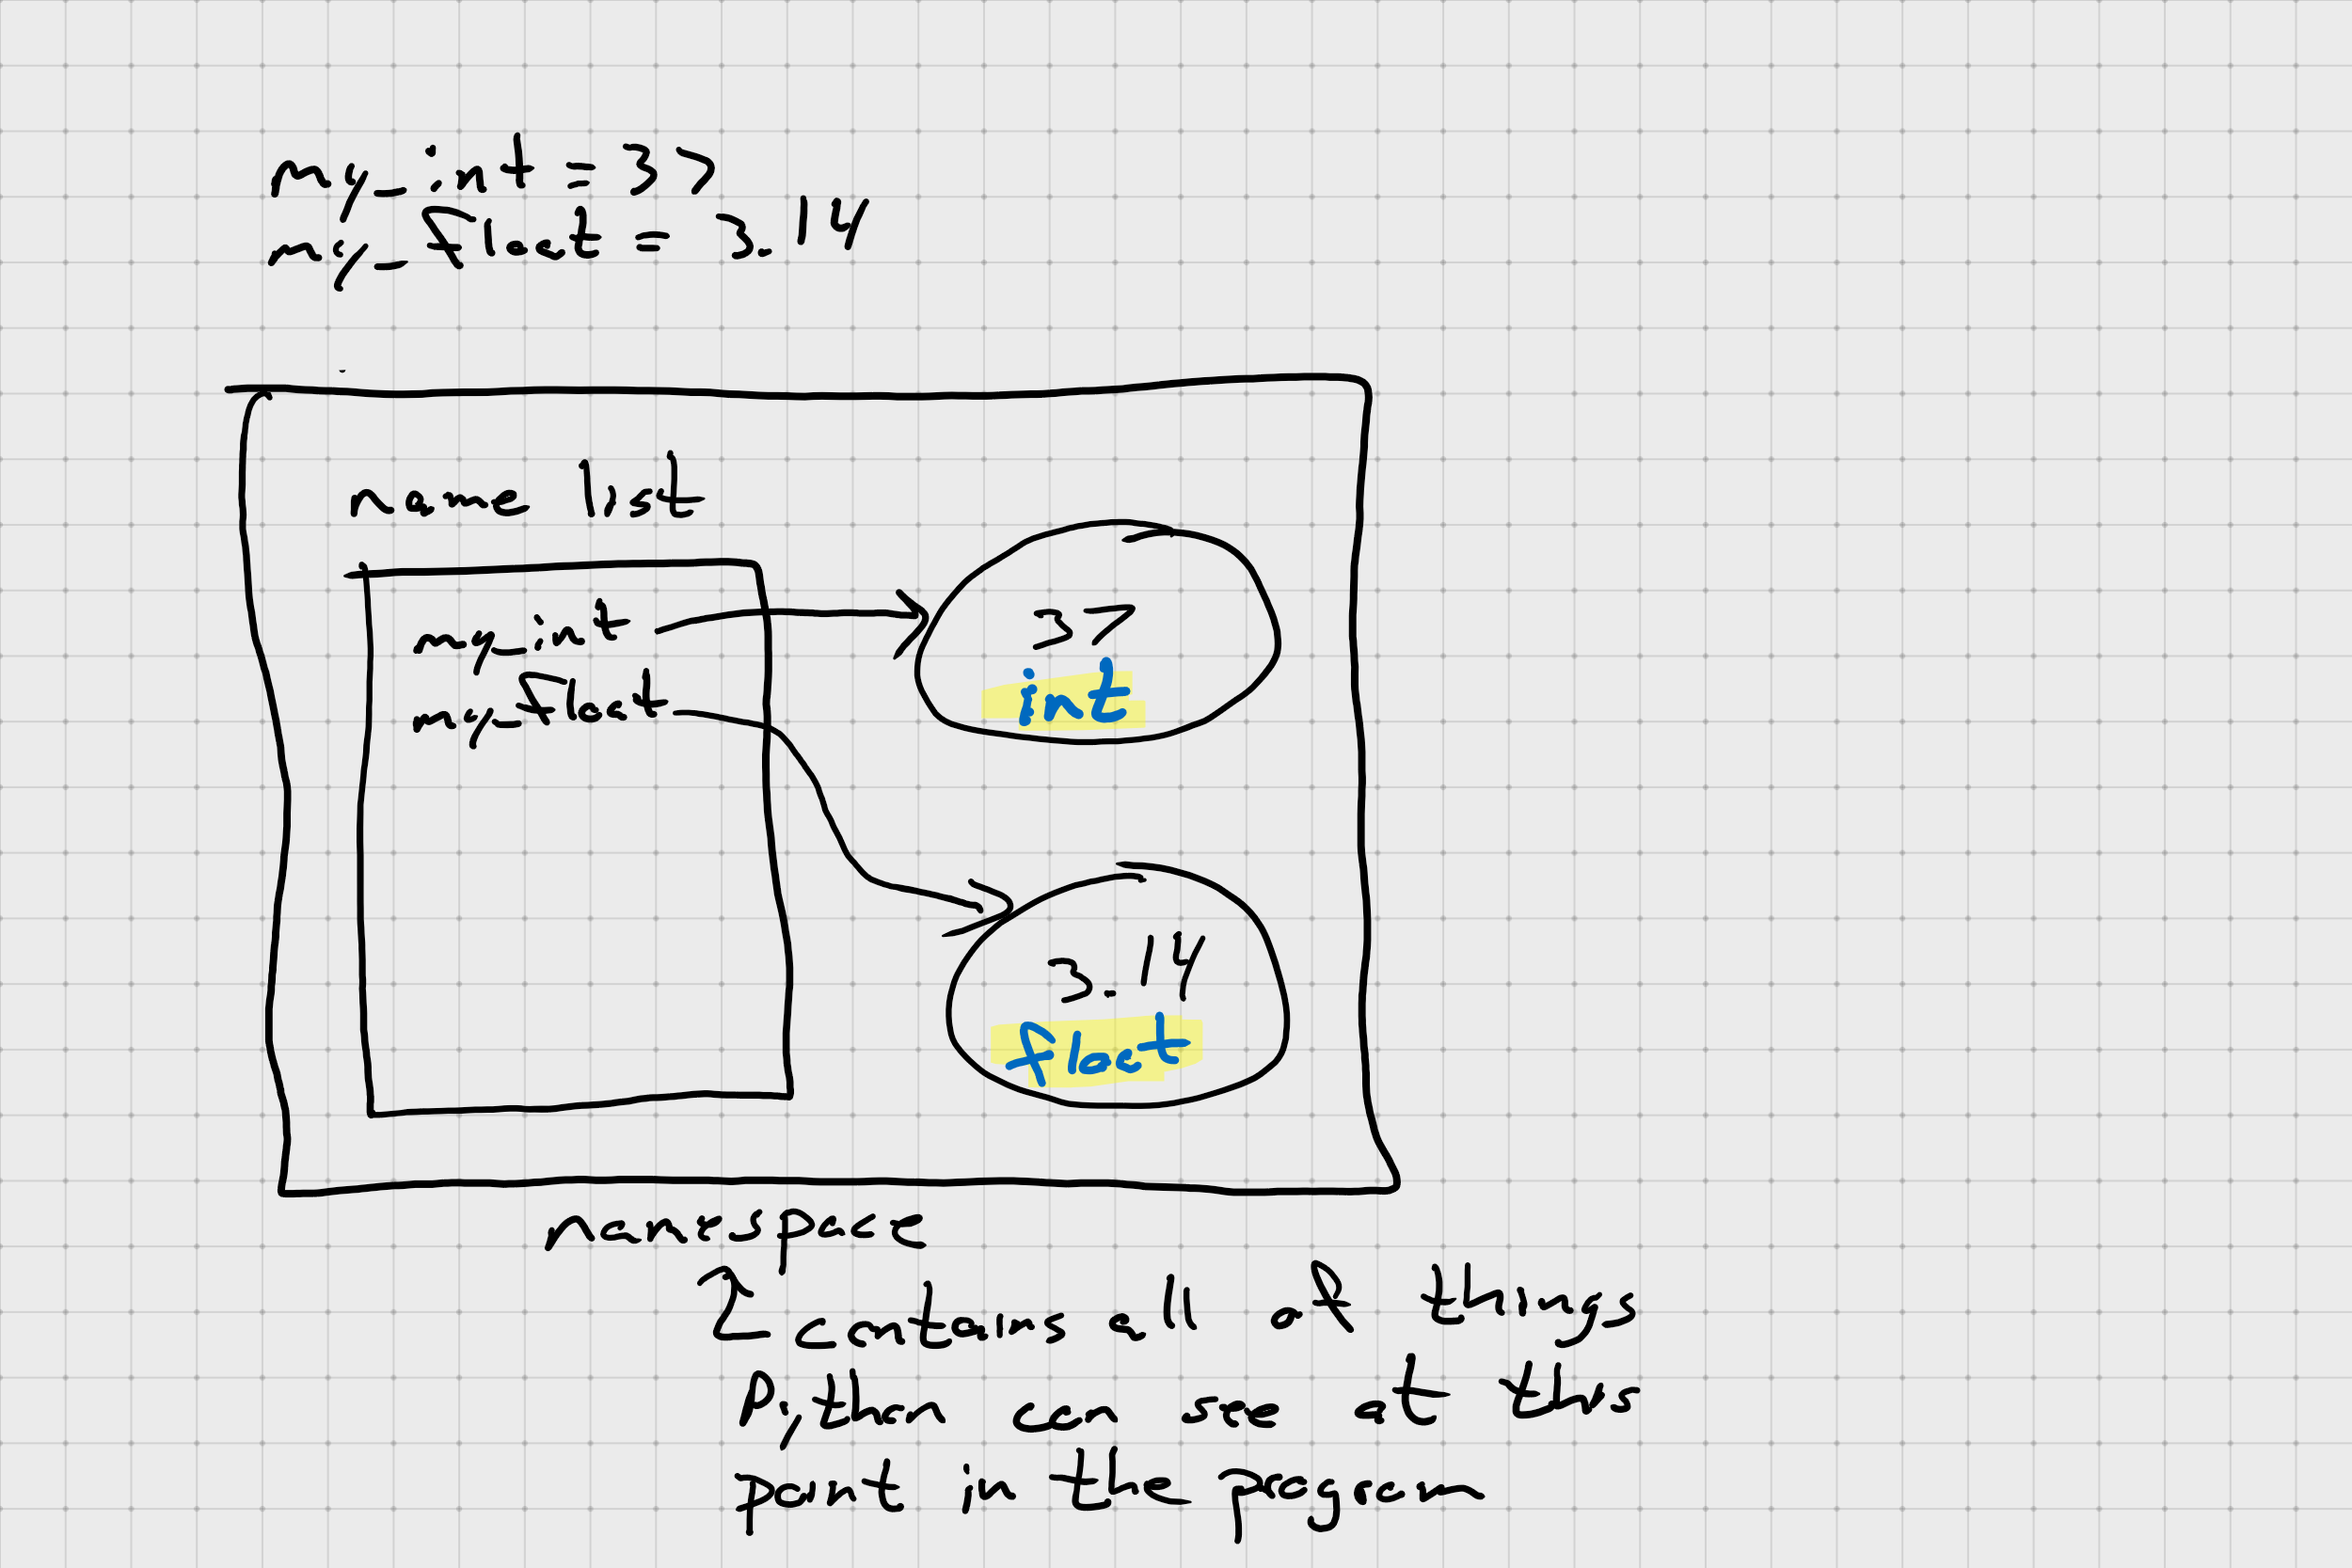 my_int = 37
my_float = 3.14
name list
my_int
my_float
37
int
3.14
float
namespace
contains all of things
Python can see at this
point in the program